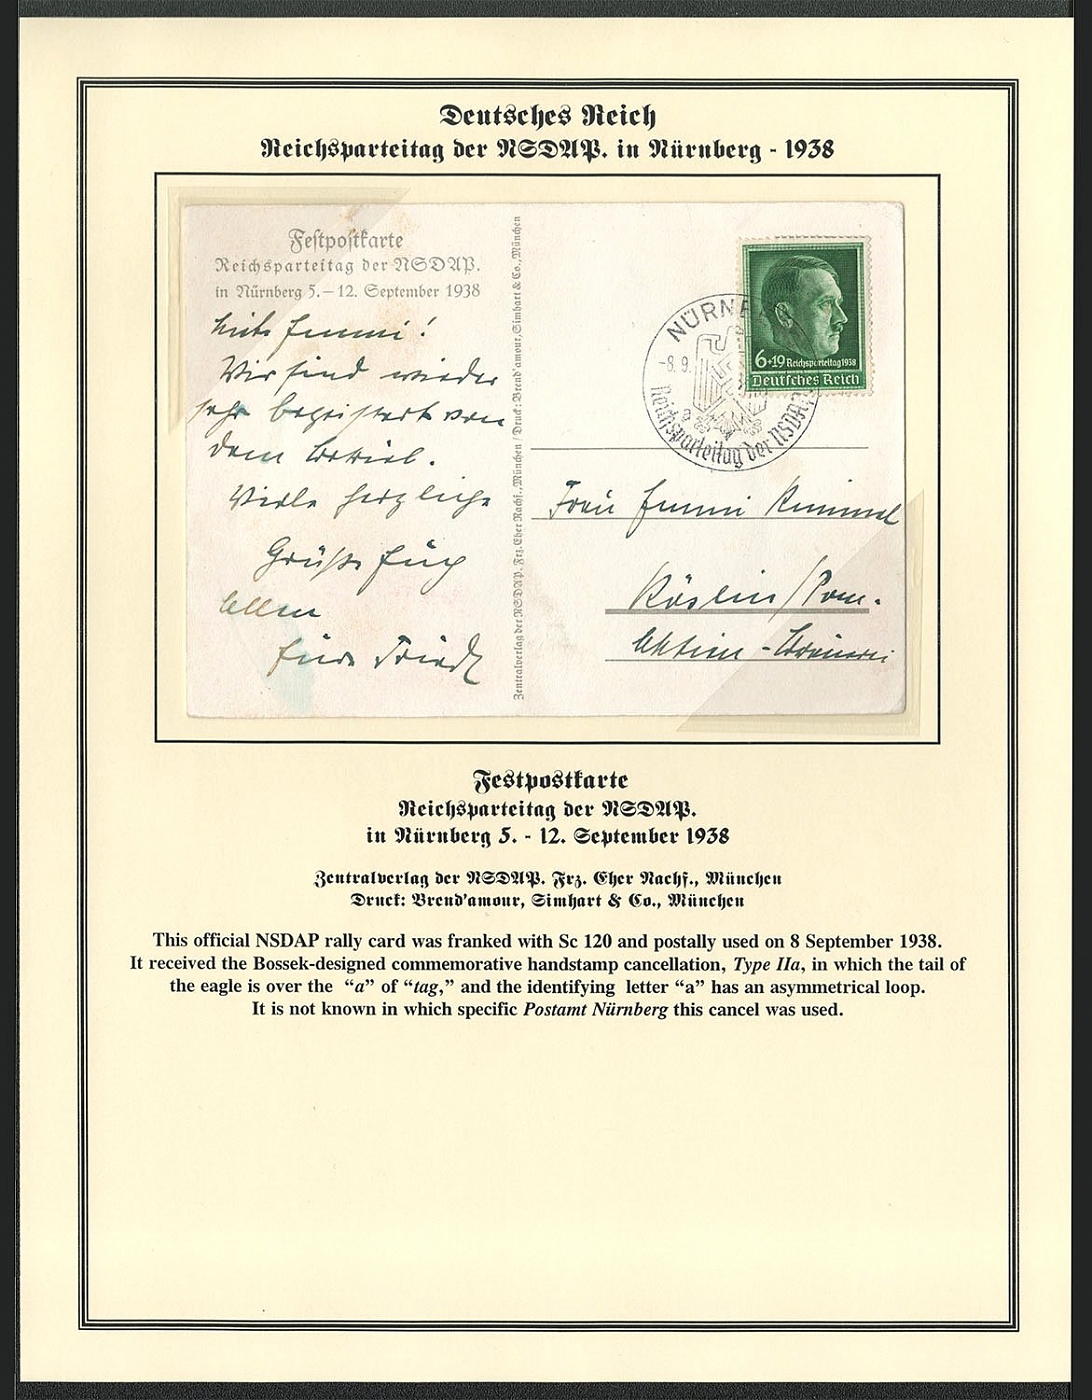 Deutsches Reich
Reichsparteitag der NSDAP. in Nürnberg - 1938
Festpostkarte
Reichsparteitag der NSDAP.
in Nürnberg 5.–12. September 1938
Wir sind wieder
sehr begeistert von
dem
Viele herzliche
Grüße Euch
allen
Zentralverlag der NSDAP. Frz. Eher Nachf., München / Druck: Brend'amour, Simhart & Co., München
NÜRNBE
-8.9.
a
Reichsparteitag der NSDAP
6+19 Reichsparteitag 1938
Deutsches Reich
Frau Emmi
Köslin/Pom.
Aktien-Brauerei
Festpostkarte
Reichsparteitag der NSDAP.
in Nürnberg 5. - 12. September 1938
Zentralverlag der NSDAP. Frz. Eher Nachf., München
Druck: Brend'amour, Simhart & Co., München
This official NSDAP rally card was franked with Sc 120 and postally used on 8 September 1938.
It received the Bossek-designed commemorative handstamp cancellation, Type IIa, in which the tail of
the eagle is over the “a” of “tag,” and the identifying letter “a” has an asymmetrical loop.
It is not known in which specific Postamt Nürnberg this cancel was used.